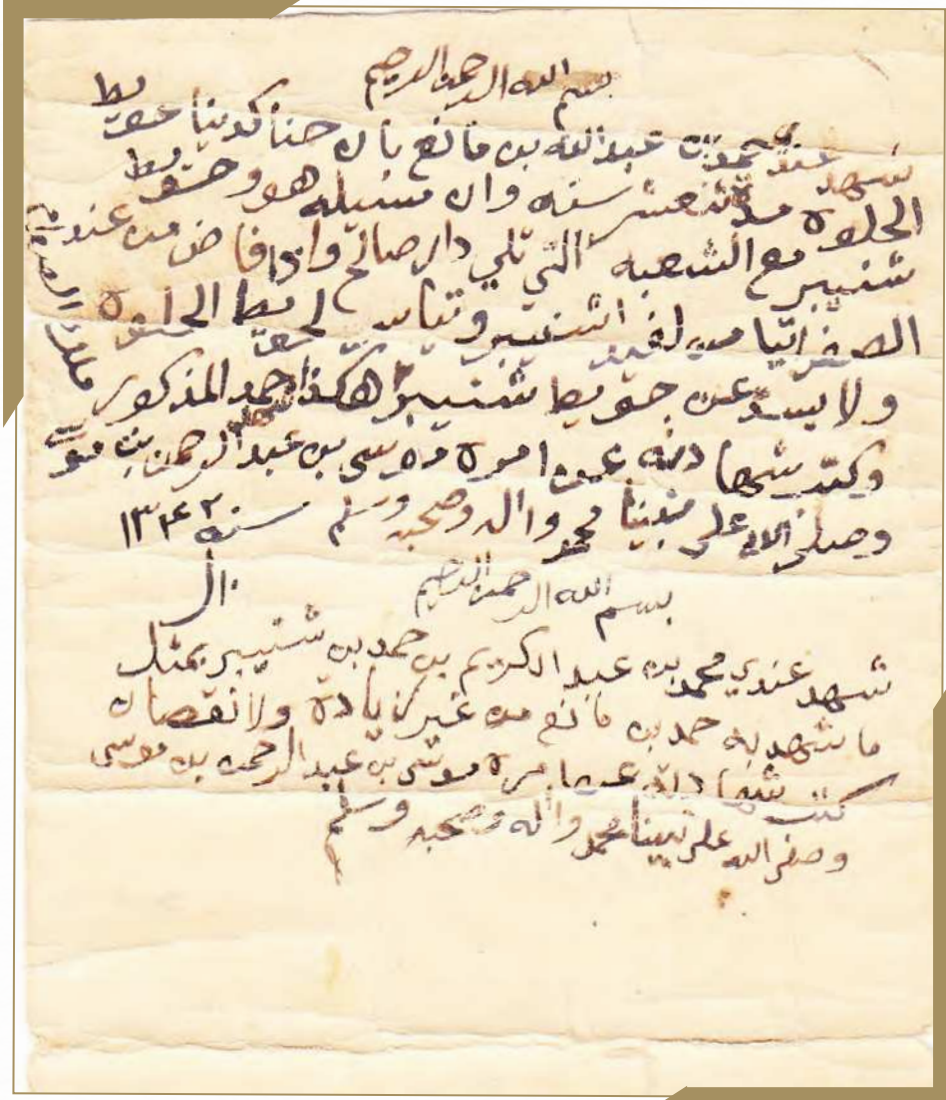 بسم الله الرحمن الرحيم
شهد عندي حمد بن عبد الله بن مانع بان حنا كدينا حويط
الحلوه مدة اثنعشر سنه وان مسيله هو وحويط
شنيبر مع الشعبه التي تلي دار صالح واذا فاض من عند
الصفر اتيا من شنيبر لحويط الحلوه
ولا يسد عن حويط شنيبر هكذا حمد المذكور
وكتب شهادته عن امره موسى بن عبد الرحمن بن موسى
وصلى الله على نبينا محمد واله وصحبه وسلم سنه ١٣٤٢
بسم الله الرحمن الرحيم
شهد عندي محمد بن عبد الكريم بن حمد بن شنيبر بمثل
ما شهد به حمد بن مانع من غير زيادة ولا نقصان
كتب شهادته عن امره موسى بن عبد الرحمن بن موسى
وصلى الله على نبينا محمد واله وصحبه وسلم